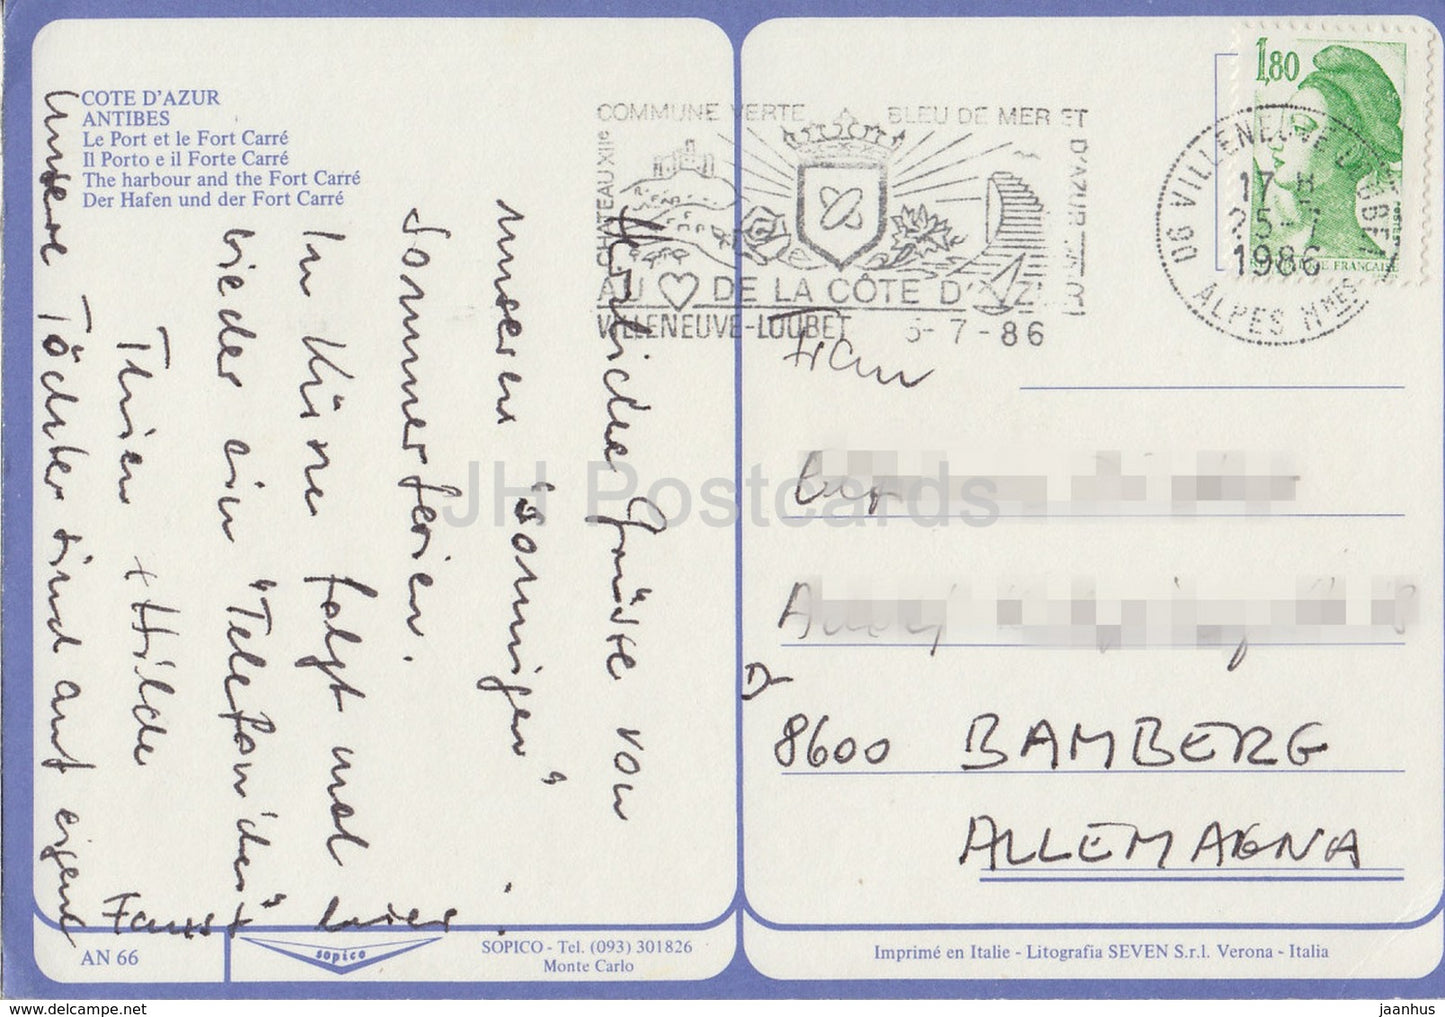 COTE D'AZUR
ANTIBES
Le Port et le Fort Carré
Il Porto e il Forte Carré
The harbour and the Fort Carré
Der Hafen und der Fort Carré
Herzliche Grüsse von
unseren "sonnigen"
Sommerferien.
In Kürze folgt mal
wieder ein "Telefon'chen"
+ Hilde
Unsere Töchter sind auf eigene
Faust hier.
COMMUNE VERTE BLEU DE MER ET
D'AZUR
CHATEAU XIIe
AU DE LA CÔTE D'AZUR
VILLENEUVE-LOUBET 5-7-86
1,80
VILLENEUVE LOUBET
17 H
25-7
1986
06 ALPES MMES
RÉPUBLIQUE FRANÇAISE
Frau
D-
8600 BAMBERG
ALLEMAGNA
JH Postcards
AN 66
sopico
SOPICO - Tel. (093) 301826
Monte Carlo
Imprimé en Italie - Litografia SEVEN S.r.l. Verona - Italia
jh-postcards.myshopify.com/?ref=dcp.net
jaanhus